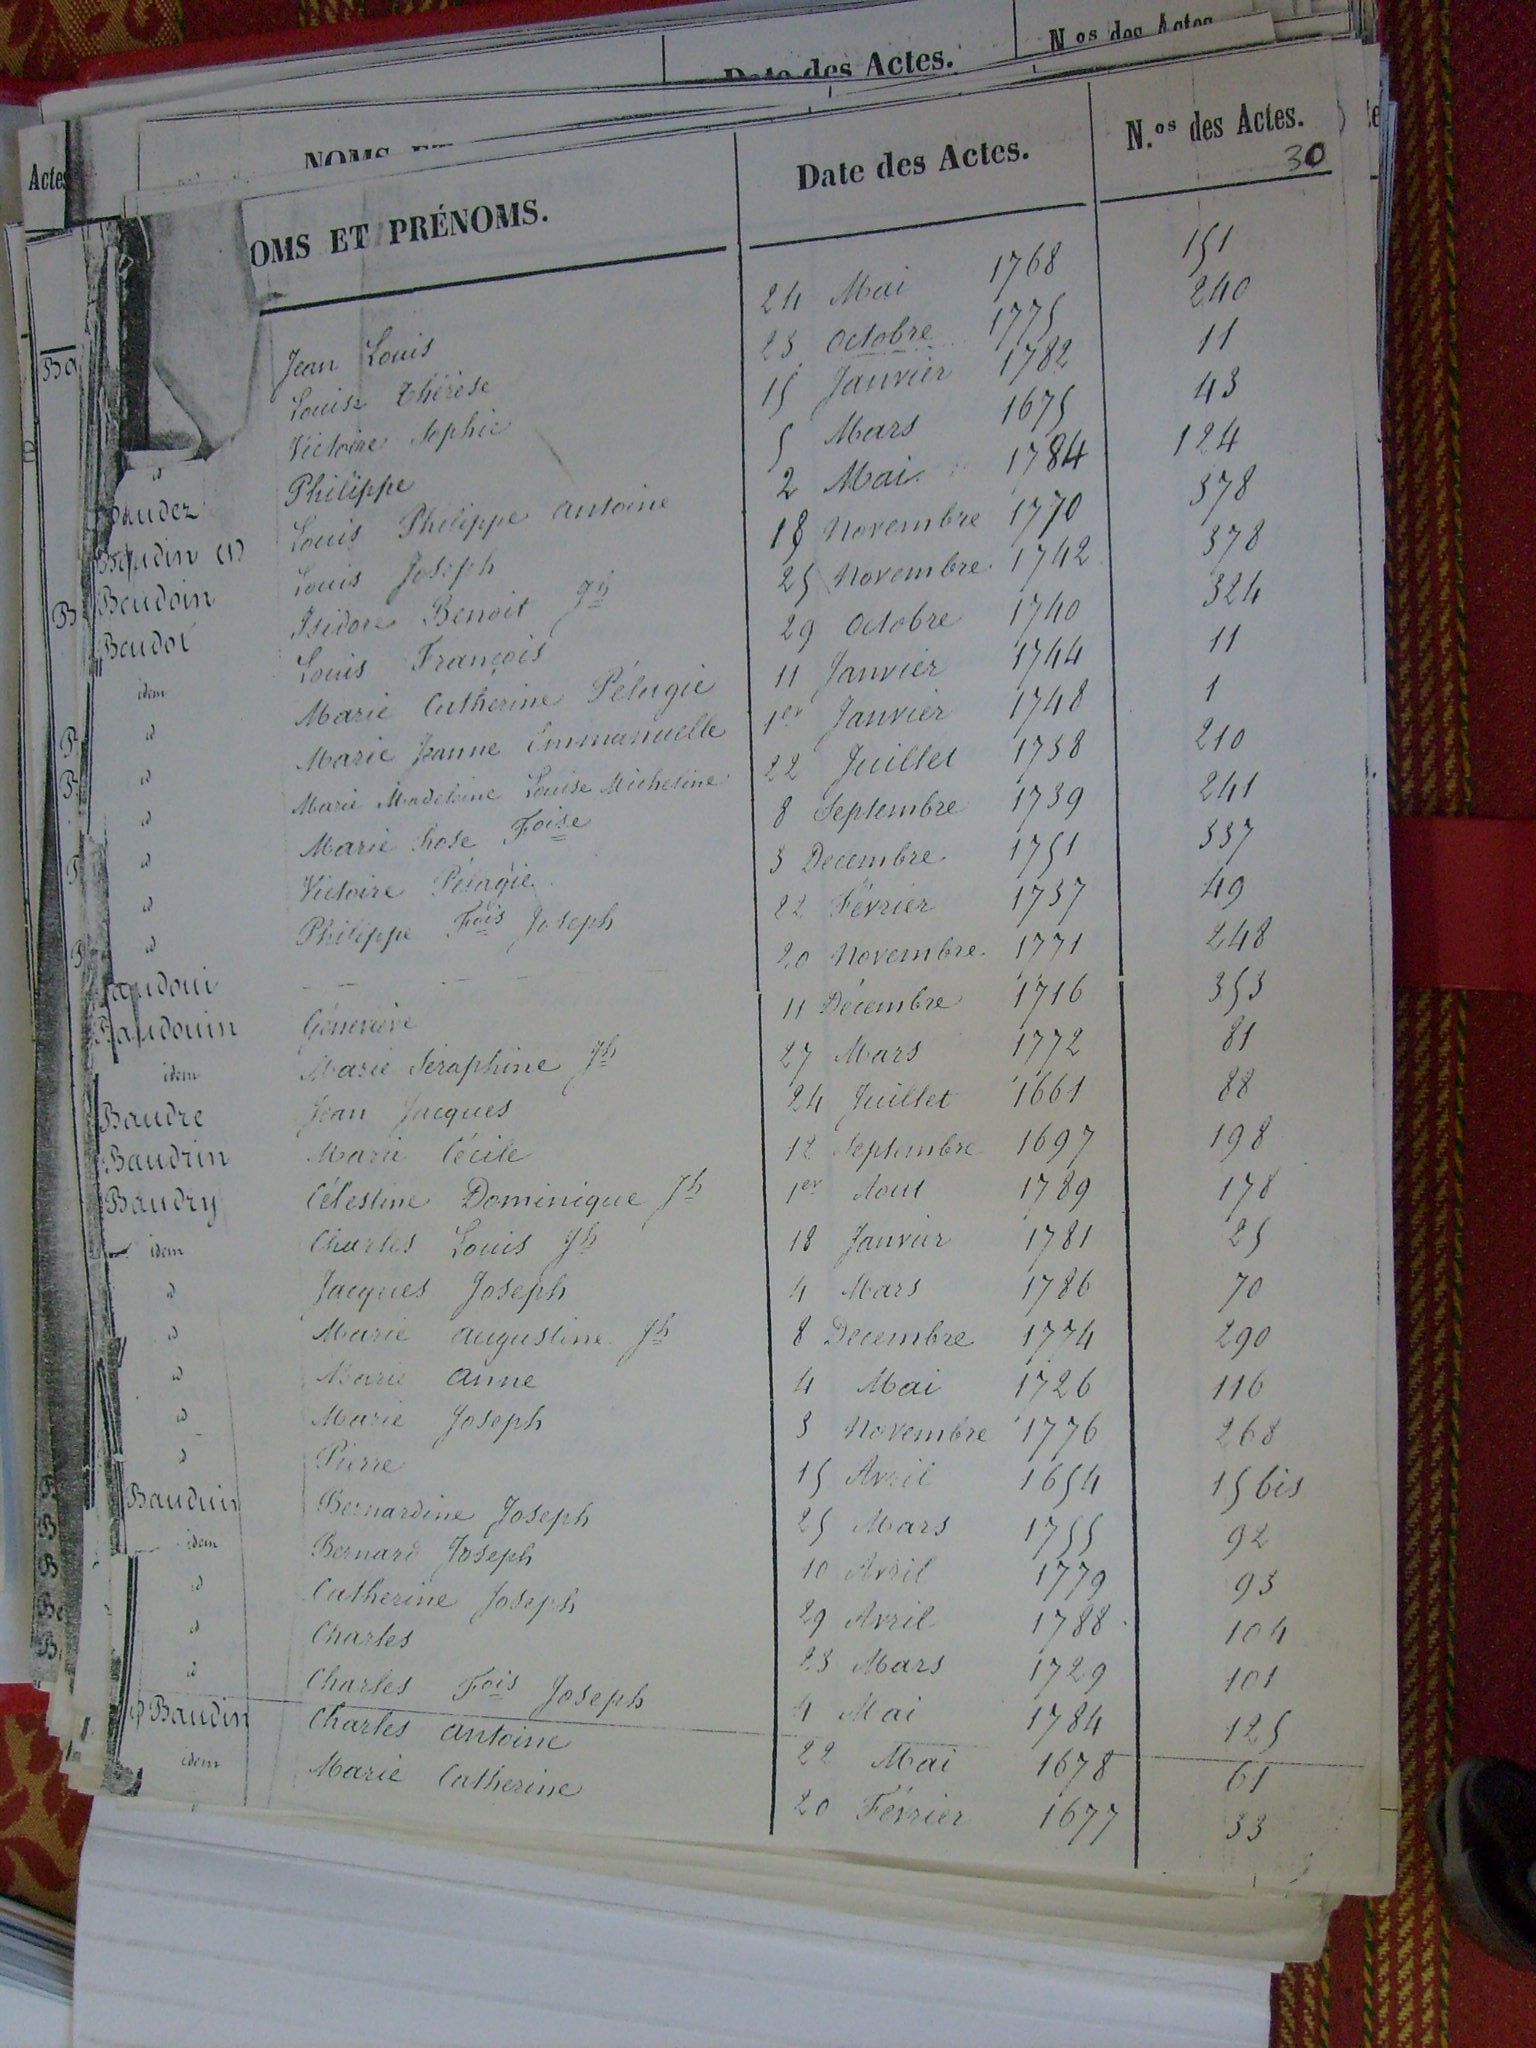 Date des Actes.
N.os des Actes
NOMS ET
Actes
OMS ET PRÉNOMS. Date des Actes. N.os des Actes.
30
Jean Louis 24 Mai 1768 151
Louise Thérèse 23 Octobre 1775 240
id Victoire Sophie 15 Janvier 1782 11
Baudez Philippe 5 Mars 1675 43
Baudin (1) Louis Philippe Antoine 2 Mai 1784 124
Baudoin Louis Joseph 18 Novembre 1770 378
Baudot Isidore Benoit Jh 25 Novembre 1742 378
idem Louis François 29 Octobre 1740 324
id Marie Catherine Pélagie 11 Janvier 1744 11
id Marie Jeanne Emmanuelle 1er Janvier 1748 1
id Marie Madeleine Louise Micheline 22 Juillet 1738 210
id Marie Rose Foise 8 Septembre 1739 241
id Victoire Pélagie 3 Decembre 1751 337
id Philippe Fois Joseph 22 Février 1737 49
Baudoui — — — 20 Novembre 1771 248
Baudouin Géneviève 11 Décembre 1716 353
idem Marie Séraphine Jh 27 Mars 1772 81
Baudre Jean Jacques 24 Juillet 1661 88
Baudrin Marie Cécile 12 Septembre 1697 198
Baudry Célestine Dominique Jh 1er Aout 1789 178
idem Charles Louis Jh 18 Janvier 1781 25
id Jacques Joseph 4 Mars 1786 70
id Marie Augustine Jh 8 Decembre 1774 290
id Marie Anne 4 Mai 1726 116
id Marie Joseph 3 Novembre 1776 268
id Pierre 15 Avril 1654 15 bis
Bauduin Bernardine Joseph 25 Mars 1755 92
idem Bernard Joseph 10 Avril 1779 93
id Catherine Joseph 29 Avril 1788 104
id Charles 23 Mars 1729 101
id Charles Fois Joseph 4 Mai 1784 125
Baudin Charles Antoine 22 Mai 1678 61
idem Marie Catherine 20 Février 1677 33